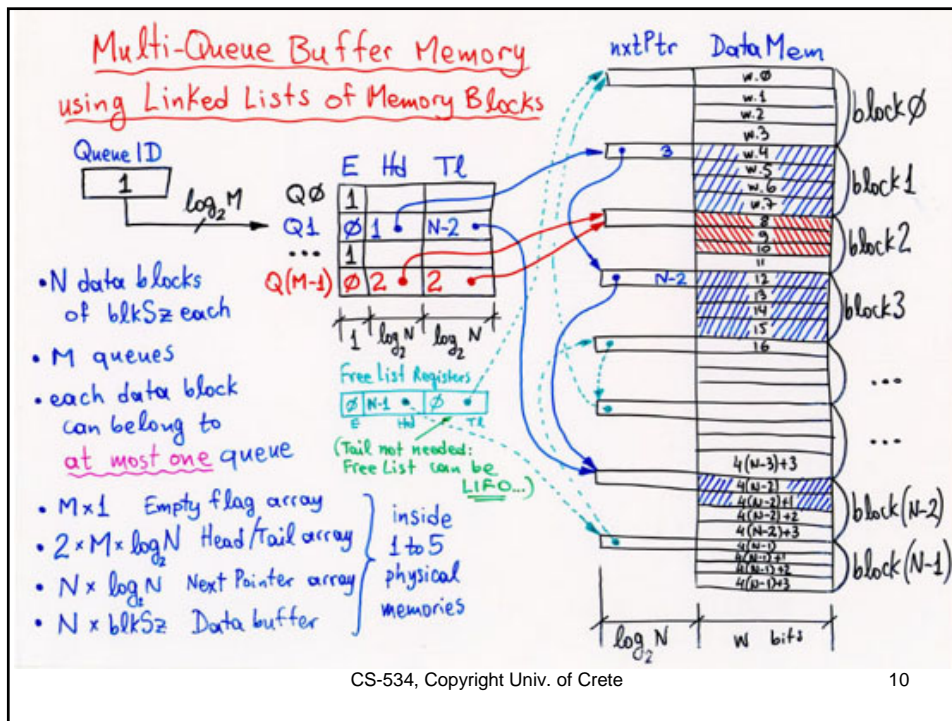 Multi-Queue Buffer Memory
using Linked Lists of Memory Blocks
Queue ID
1
log₂M
E Hd Tl
QØ 1
Q1 Ø 1 N-2
... 1
Q(M-1) Ø 2 2
1 log₂N log₂N
Free List Registers
Ø N-1 Ø
E Hd Tl
(Tail not needed:
Free List can be
LIFO...)
• N data blocks
of blkSz each
• M queues
• each data block
can belong to
at most one queue
• M×1 Empty flag array
• 2×M×log₂N Head/Tail array
• N×log₂N Next Pointer array
• N×blkSz Data buffer
inside
1 to 5
physical
memories
nxtPtr DataMem
w.Ø
w.1
w.2
w.3
blockØ
3 w.4
w.5
w.6
w.7
block1
8
9
10
11
block2
N-2 12
13
14
15
block3
16
...
...
4(N-3)+3
4(N-2)
4(N-2)+1
4(N-2)+2
4(N-2)+3
block(N-2)
4(N-1)
4(N-1)+1
4(N-1)+2
4(N-1)+3
block(N-1)
log₂N w bits
CS-534, Copyright Univ. of Crete 10